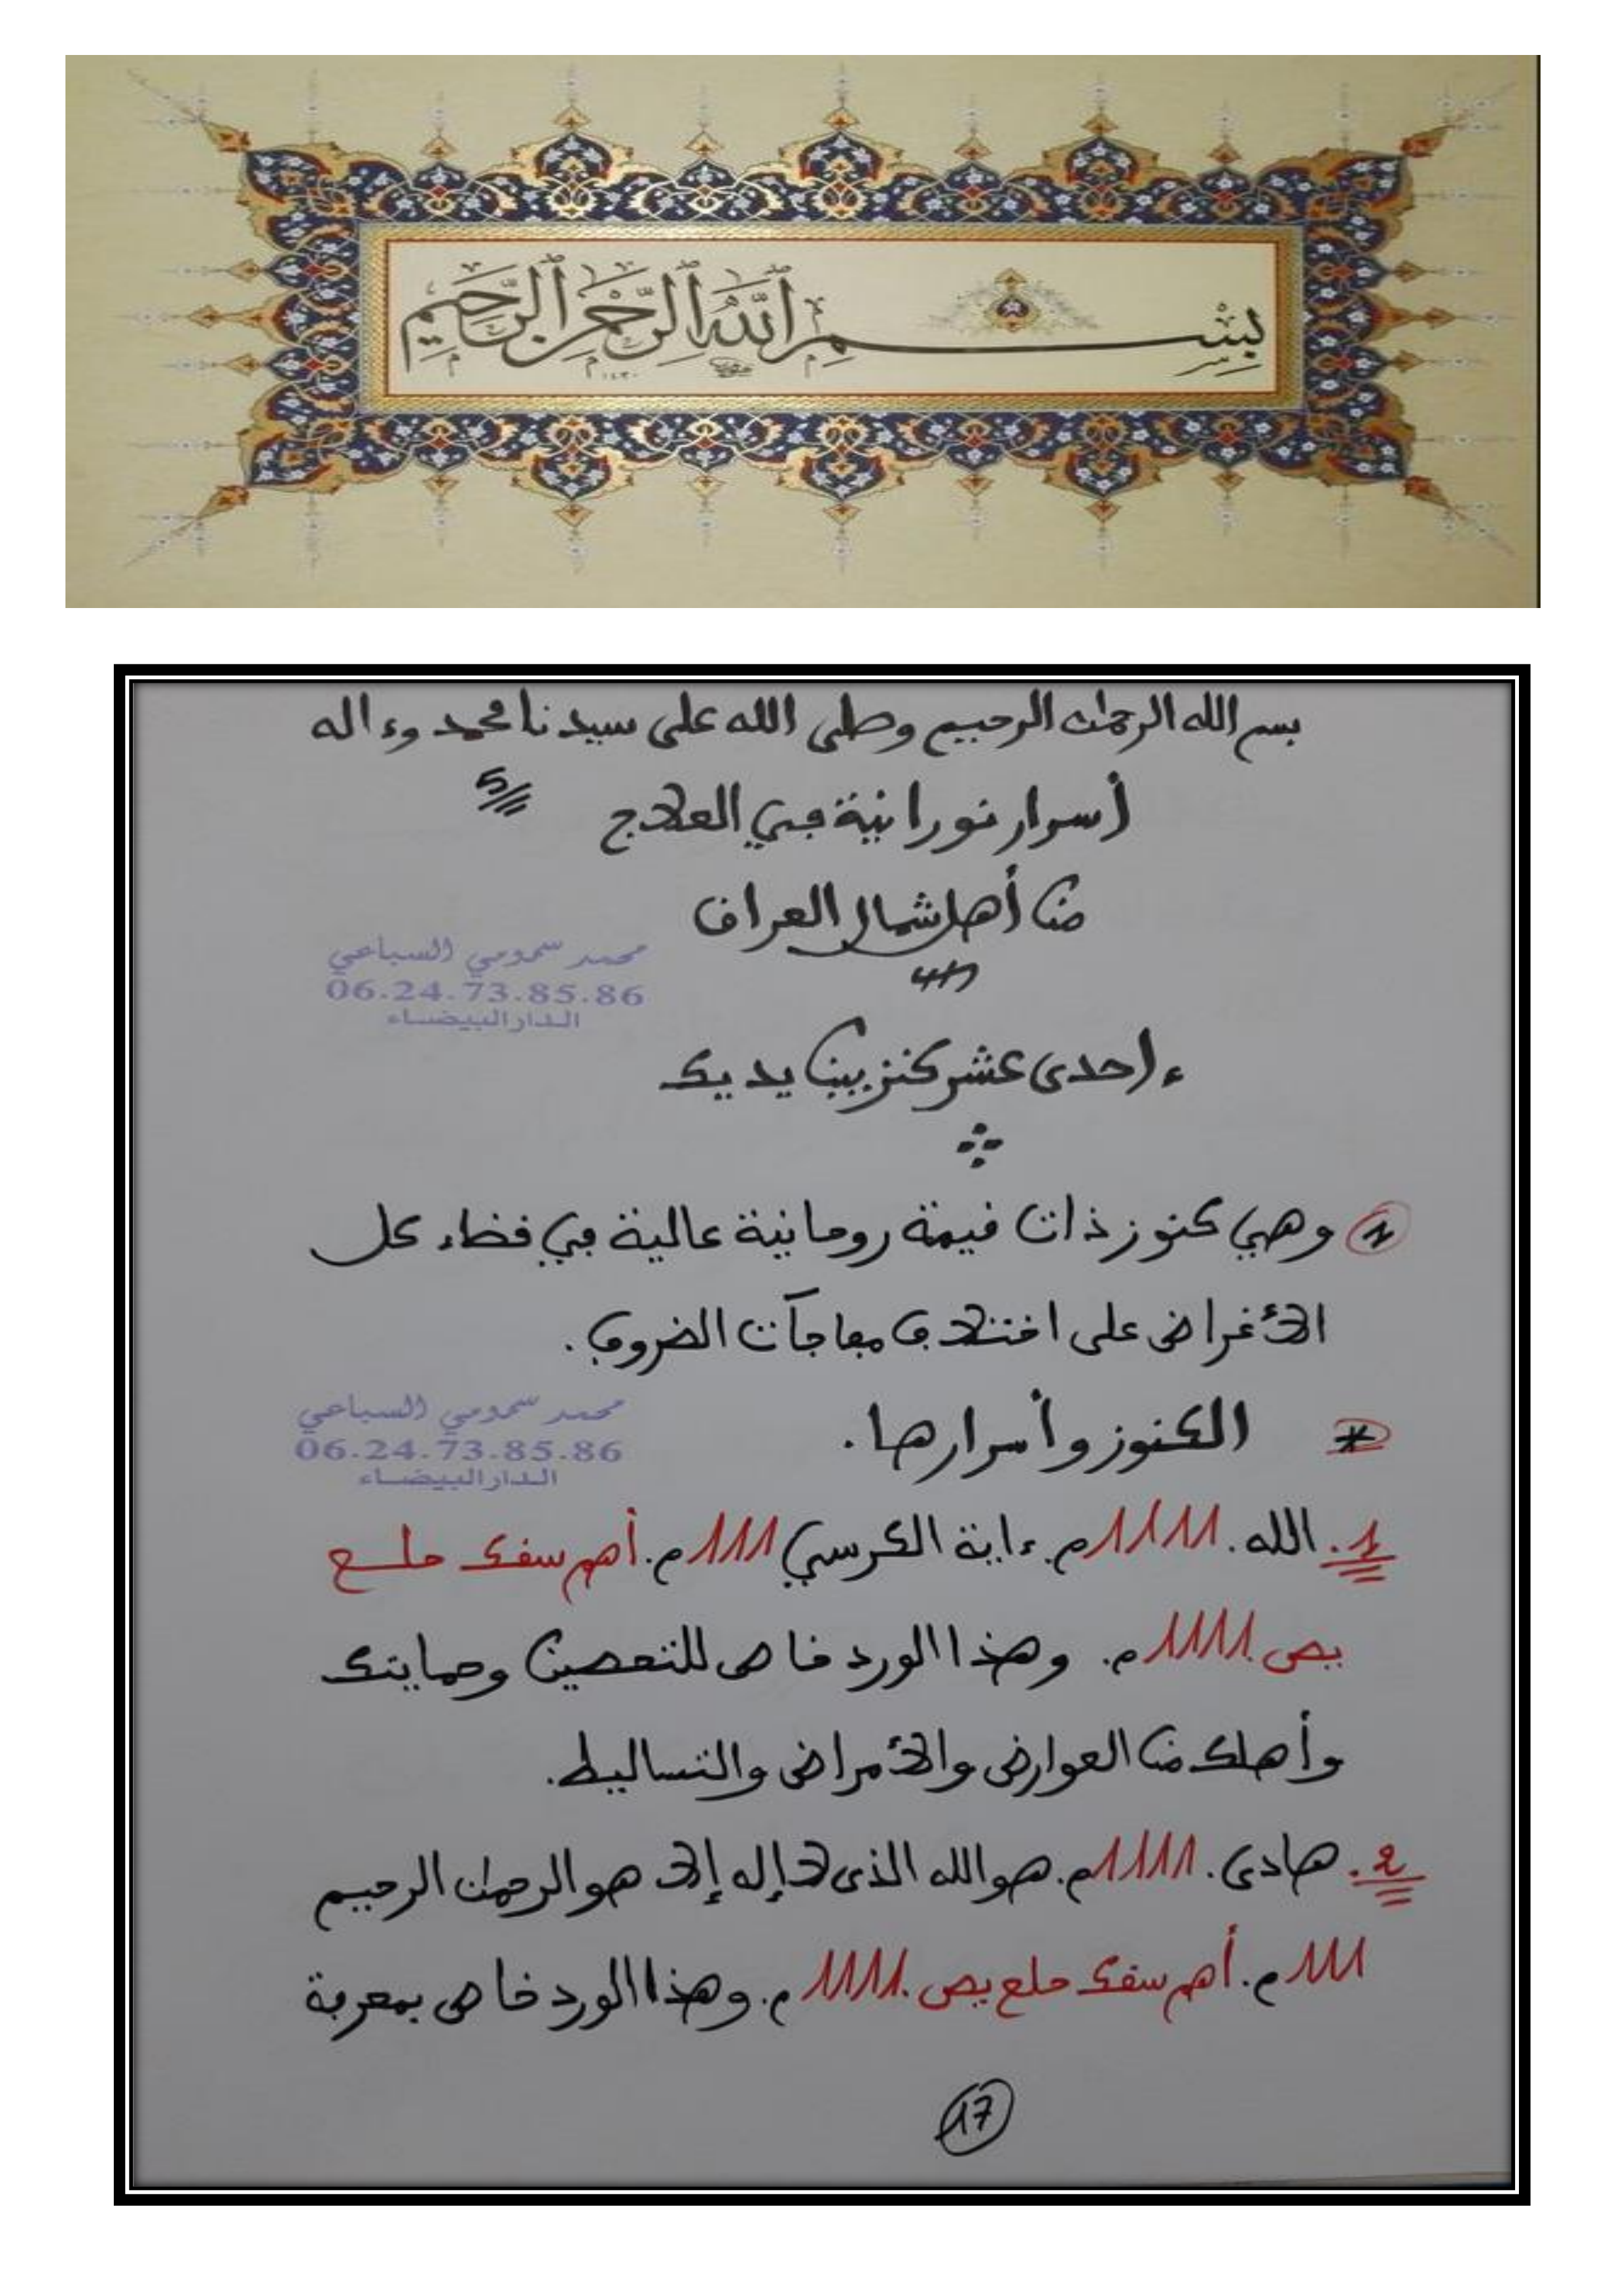 بسم الله الرحمن الرحيم
بسم الله الرحمن الرحيم وصلى الله على سيدنا محمد وءاله
أسرار نورانية في العلاج 5
من أهل شمال العراق
محمد سمومي السباعي
06.24.73.85.86
الدار البيضاء
ءاحدى عشر كنز بين يديك
1 وهي كنوز ذات قيمة روحانية عالية في قضاء كل
الأغراض على اختلاف مفاجآت الضروف.
* الكنوز وأسرارها.
محمد سمومي السباعي
06.24.73.85.86
الدار البيضاء
1. الله. 11111م. ءاية الكرسي 1111م. أهم سقك حلع
يص 11111م. وهذا الورد خاص للتحصين وحمايتك
وأهلك من العوارض والأمراض والتساليط.
2. هادى. 11111م. هو الله الذى لا إله إلا هو الرحمن الرحيم
1111م. أهم سقك حلع يص. 11111م. وهذا الورد خاص بمعرفة
17